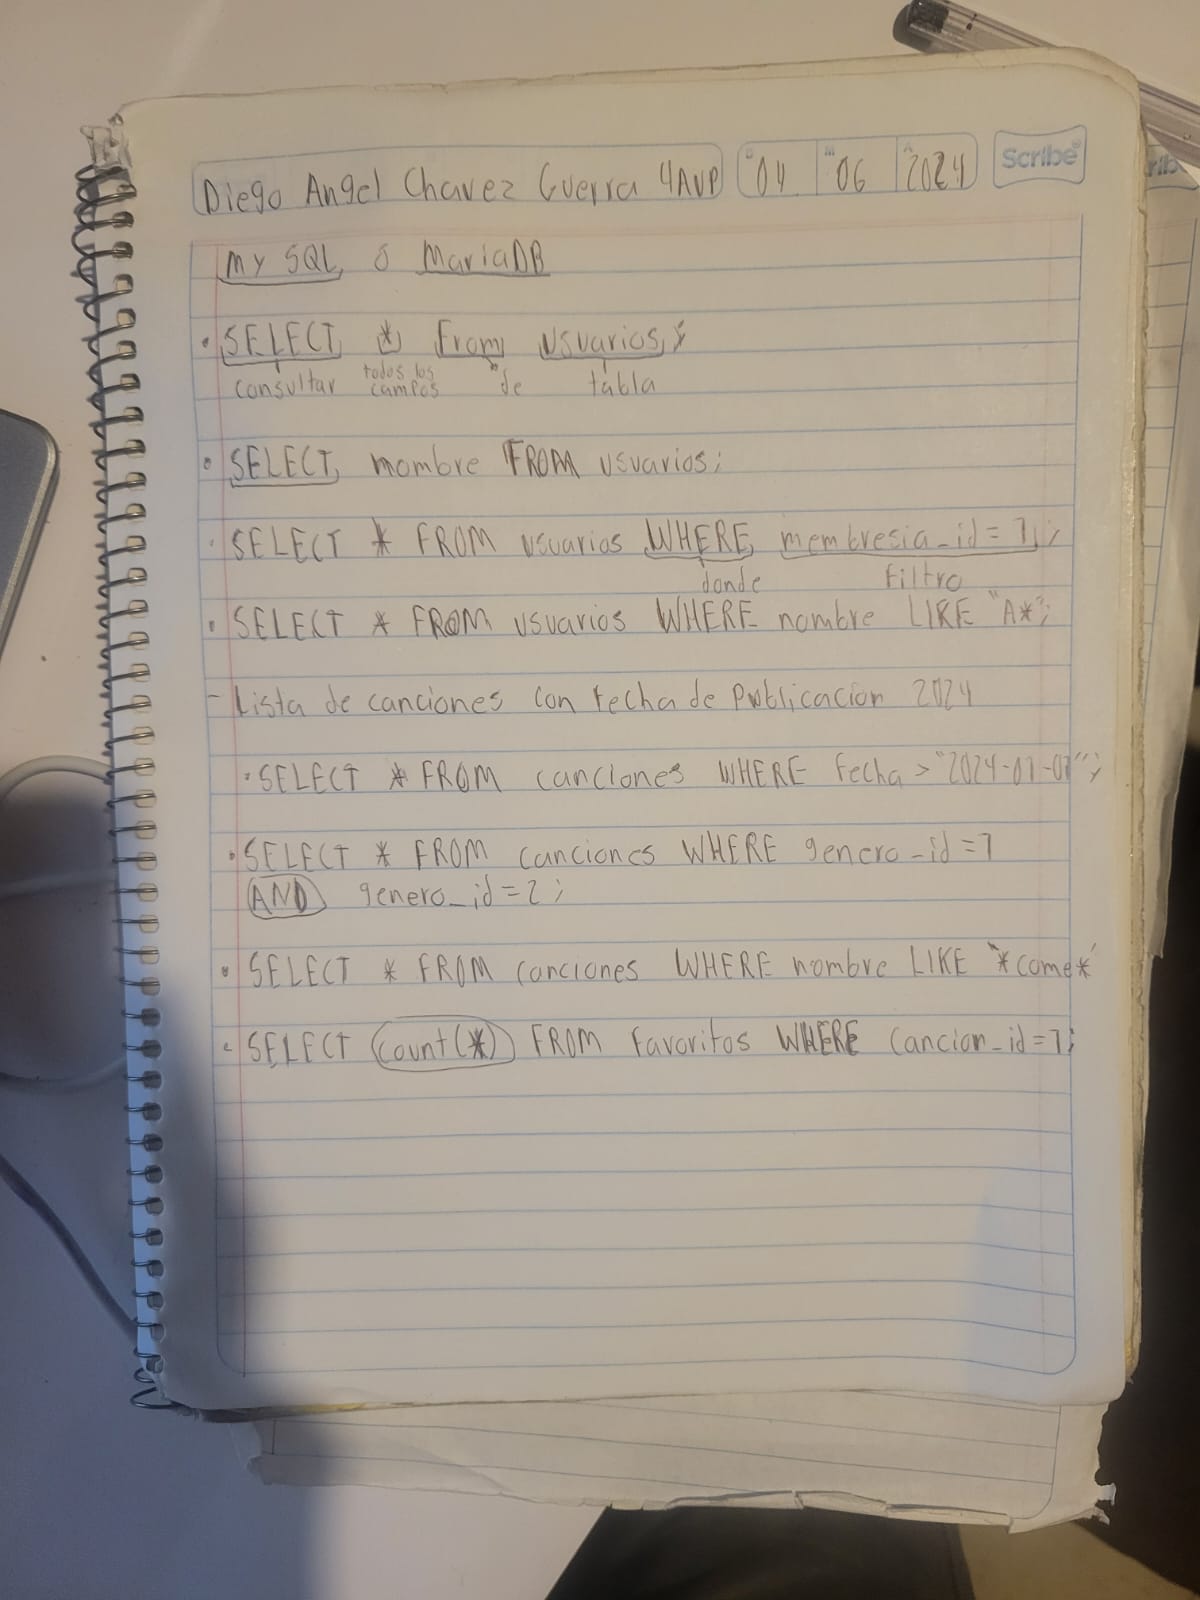 Diego Angel Chavez Guerra 4AVP 04 06 2024 Scribe
My SQL ó MariaDB
• SELECT * From usuarios;
consultar todos los campos de tabla
• SELECT nombre FROM usuarios;
• SELECT * FROM usuarios WHERE membresia_id = 1;
donde filtro
• SELECT * FROM usuarios WHERE nombre LIKE "A*";
- Lista de canciones con fecha de publicacion 2024
• SELECT * FROM canciones WHERE fecha > "2024-01-01";
• SELECT * FROM canciones WHERE genero_id = 1
AND genero_id = 2;
• SELECT * FROM canciones WHERE nombre LIKE "*come*"
• SELECT count(*) FROM favoritos WHERE cancion_id = 1;